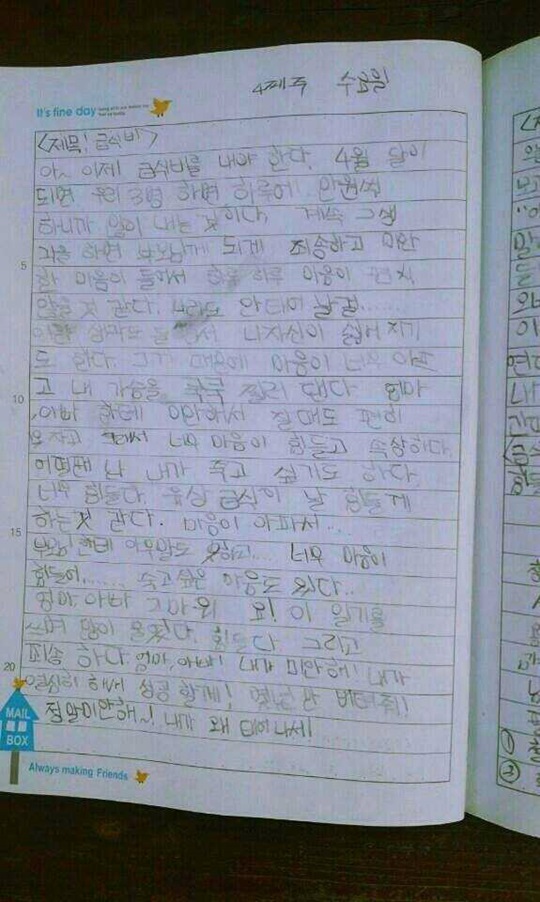 4째주 수요일
It's fine day
<제목! 급식비>
아~ 이제 급식비를 내야 한다. 4월 달이
되면 우리 3명 하면 하루에 만원씩
하니까 많이 내는 것이다. 계속 그생
각을 하면 부모님께 되게 죄송하고 미안
5
한 마음이 들어서 하루 하루 마음이 편치
않을 것 같다. 나라도 안태어 날걸.......
이란 생각도 들어서 나자신이 싫어 지기
도 한다. 그거 때문에 마음이 너무 아프
고 내 가슴을 콕콕 찔러 댄다 엄마
10
,아빠 한테 미안해서 잘때도 편히
못자고 그래서 너무 마음이 힘들고 속상하다.
어떨땐 나 내가 죽고 싶기도 하다.
너무 힘들다. 유상 급식이 날 힘들게
하는것 같다. 마음이 아파서...
15
부모님한테 아무말도 못하고.... 너무 마음이
힘들어....... 죽고싶은 마음도 있다..
엄마, 아빠 고마워 요! 이 일기를
쓰며 많이 울었다. 힘든다 그리고
20
죄송 하다. 엄마, 아빠! 내가 미안해! 내가
열심히 해서 성공 할게! 몇년만 버텨줘!
정말미안해~! 내가 왜 태어나서!
MAIL
BOX
Always making Friends
①
③